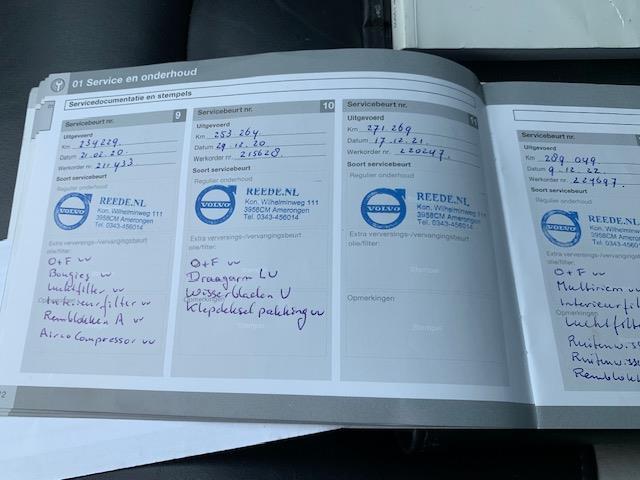 01 Service en onderhoud
Servicedocumentatie en stempels
Servicebeurt nr. 9
Uitgevoerd
Km 234229.
Datum 21.02.20.
Werkorder nr. 211433
Soort servicebeurt
Regulier onderhoud
VOLVO
REEDE.NL
Kon. Wilhelminweg 111
3958CM Amerongen
Tel. 0343-456014
Extra verversings-/vervangingsbeurt
olie/filter:
O+F vv
Bougies vv
Luchtfilter vv
Interieurfilter vv
Remblokken A vv
Airco Compressor vv
Servicebeurt nr. 10
Uitgevoerd
Km 253.264
Datum 29.12.20.
Werkorder nr. 215628.
Soort servicebeurt
Regulier onderhoud
VOLVO
REEDE.NL
Kon. Wilhelminweg 111
3958CM Amerongen
Tel. 0343-456014
Extra verversings-/vervangingsbeurt
olie/filter:
O+F vv
Draagarm L v
Wisserbladen V
Klepdeksel pakking vv
Stempel
Servicebeurt nr. 11
Uitgevoerd
Km 271.269
Datum 17.12.21.
Werkorder nr. 220247.
Soort servicebeurt
Regulier onderhoud
VOLVO
REEDE.NL
Kon. Wilhelminweg 111
3958CM Amerongen
Tel. 0343-456014
Extra verversings-/vervangingsbeurt
olie/filter:
Stempel
Opmerkingen
Stempel
Servicebeurt nr.
Uitgevoerd
Km 289.049
Datum 9.12.22
Werkorder nr. 224697.
Soort servicebeurt
Regulier onderhoud
VOLVO
REEDE.NL
Kon. Wilhelminweg
3958CM Amerongen
Tel. 0343-456014
Extra verversings-/vervangingsbeurt
olie/filter:
O+F vv
Multiriem vv
Interieurfil
Opmerkingen
Luchtfilt
Ruitenwiss
Ruitenwisse
Remblokk